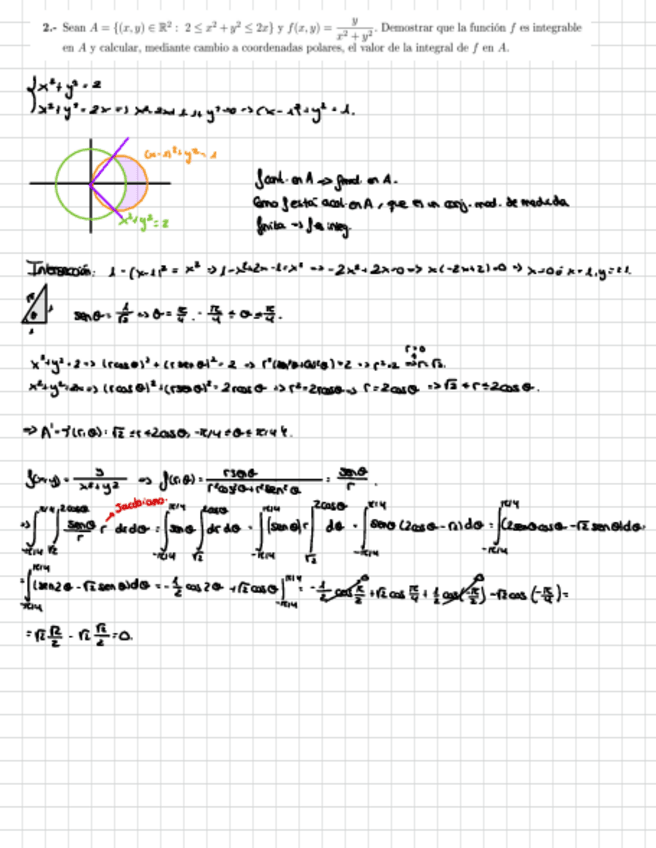 2.- Sean A = {(x, y) ∈ ℝ² : 2 ≤ x² + y² ≤ 2x} y f(x, y) = y/(x² + y²). Demostrar que la función f es integrable
en A y calcular, mediante cambio a coordenadas polares, el valor de la integral de f en A.
{x²+y² = 2
x²+y² = 2x => x²-2x+1-1+y²=0 => (x-1)²+y² = 1.
(x-1)²+y²=1
x²+y²=2
f cont. en A => f med. en A.
Como f está acot. en A, que es un conj. med. de medida
finita => f es integ.
Intersección: 1-(x-1)² = 2-x² => 
senθ = 1/√2 => θ = π/4. -π/4 ≤ θ ≤ π/4.
r>0
x²+y²=2 => (rcosθ)²+(rsenθ)²=2 => r²(cos²θ+sen²θ)=2 => r²=2 => r=√2.
x²+y²=2x => (rcosθ)²+(rsenθ)²=2rcosθ => r²=2rcosθ => r=2cosθ => √2 ≤ r ≤ 2cosθ.
=> A'={(r,θ): √2 ≤ r ≤ 2cosθ, -π/4 ≤ θ ≤ π/4}.
f(x,y) = y/(x²+y²) => f(r,θ) = rsenθ/(r²cos²θ+r²sen²θ) = senθ/r.
Jacobiano.
=> ∫_{-π/4}^{π/4} ∫_{√2}^{2cosθ} senθ/r r dr dθ = ∫_{-π/4}^{π/4} senθ ∫_{√2}^{2cosθ} dr dθ = ∫_{-π/4}^{π/4} [(senθ) r]_{√2}^{2cosθ} dθ = ∫_{-π/4}^{π/4} senθ (2cosθ - √2) dθ = ∫_{-π/4}^{π/4} (2senθcosθ - √2 senθ) dθ
= ∫_{-π/4}^{π/4} (sen2θ - √2 senθ) dθ = -1/2 cos2θ + √2 cosθ |_{-π/4}^{π/4} = -1/2 cos π/2 + √2 cos π/4 + 1/2 cos(-π/2) - √2 cos(-π/4) =
= √2 √2/2 - √2 √2/2 = 0.